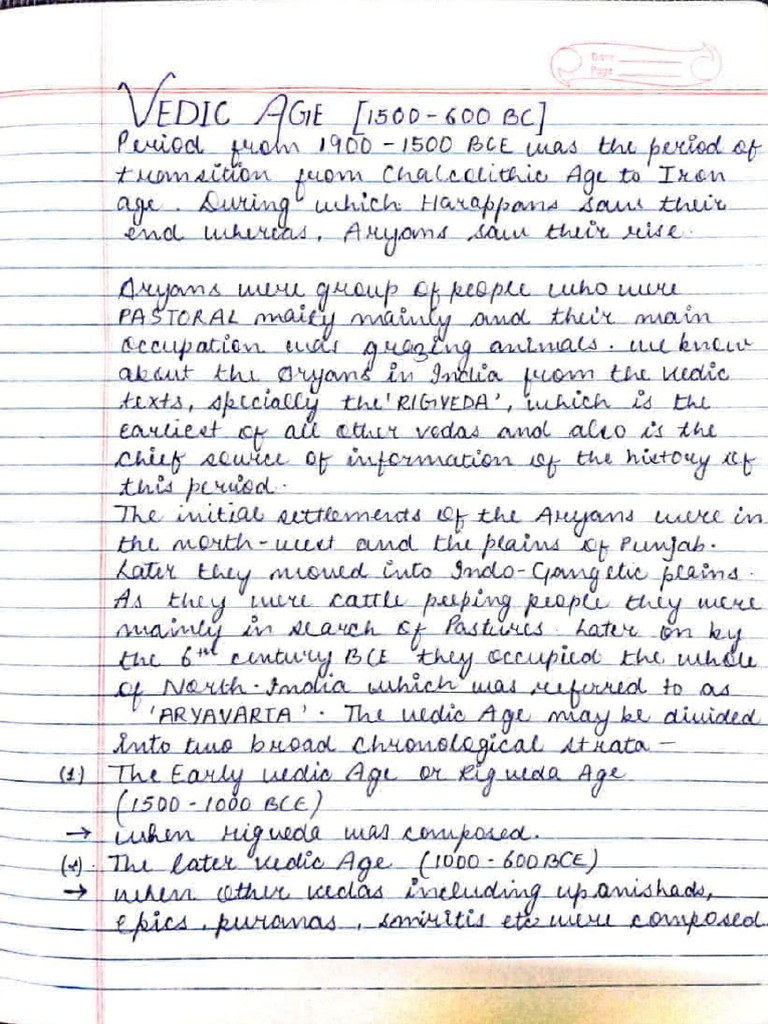 Date
Page
VEDIC AGE [1500-600 BC]
Period from 1900-1500 BCE was the period of
transition from Chalcolithic Age to Iron
age. During which Harappans saw their
end whereas, Aryans saw their rise.
Aryans were group of people who were
PASTORAL maity mainly and their main
occupation was grazing animals. we know
about the Aryans in India from the vedic
texts, specially the 'RIGVEDA', which is the
earliest of all other vedas and also is the
chief source of information of the history of
this period.
The initial settlements of the Aryans were in
the north-west and the plains of Punjab.
Later they moved into Indo-Gangetic plains.
As they were cattle peeping people they were
mainly in search of Pastures. Later on by
the 6th century BCE they occupied the whole
of North-India which was referred to as
'ARYAVARTA'. The vedic Age may be divided
into two broad chronological strata -
(1) The Early vedic Age or Rigveda Age
(1500-1000 BCE)
→ when rigveda was composed.
The later vedic Age (1000-600 BCE)
→ when other vedas including upanishads,
epics, puranas, smiritis etc were composed.